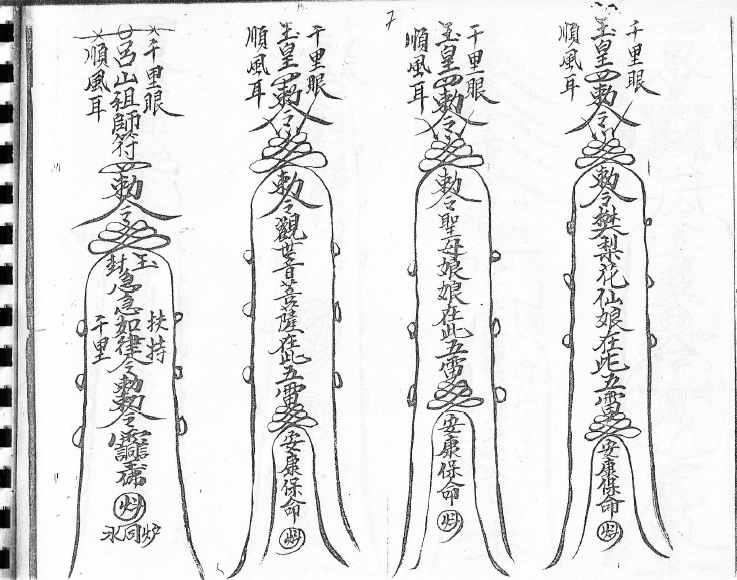 千里眼
玉皇勅令
順風耳
勅令樊梨花仙娘在此五雷
安康保命
千里眼
玉皇勅令
順風耳
勅令聖母娘娘在此五雷
安康保命
千里眼
玉皇勅令
順風耳
勅令觀世音菩薩在此五雷
安康保命
千里眼
呂山祖師符勅令
順風耳
玉封
急急如律令勅勅令
扶持
千里